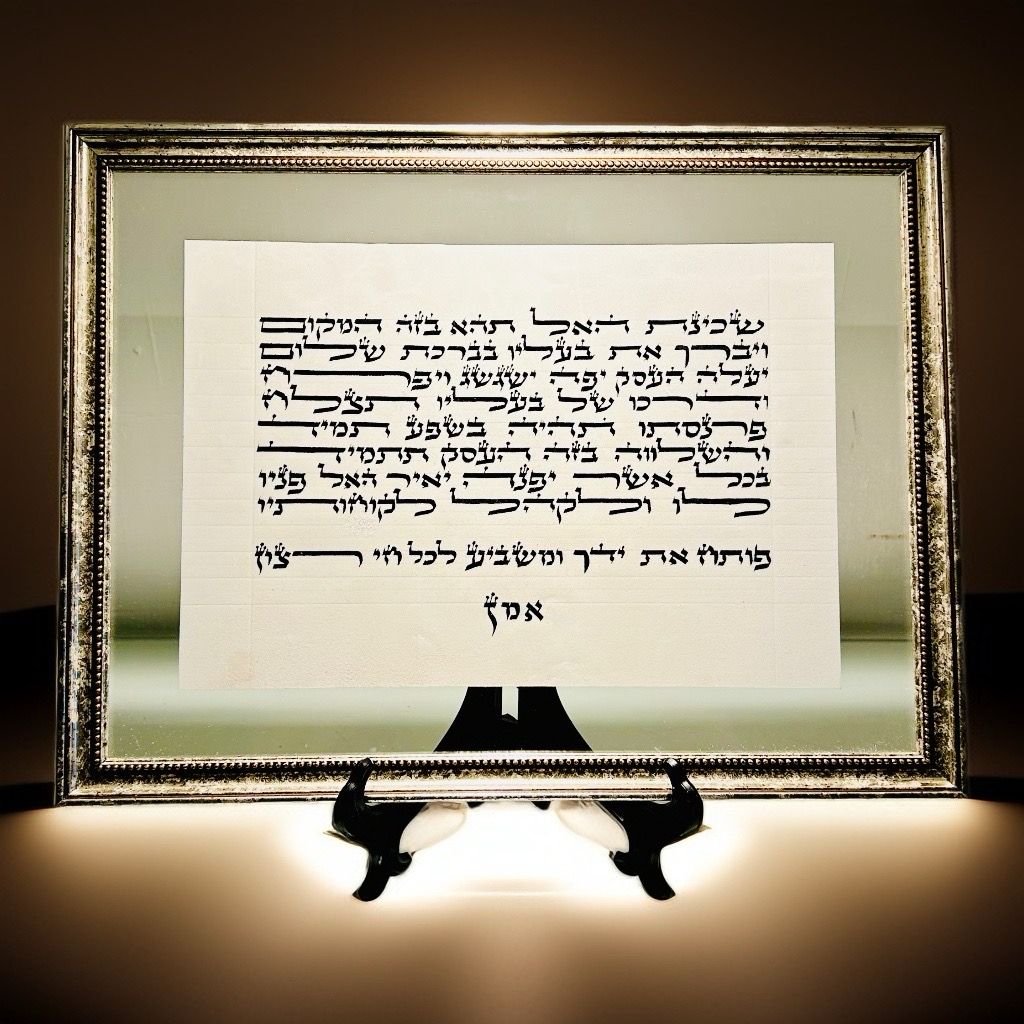 שכינת האל תהא בזה המקום
ויברך את בעליו בברכת שלום
יעלה העסק יפה ישגשג ויפרח
ודרכו של בעליו תצלח
פרנסתו תהיה בשפע תמיד
והשלווה בזה העסק תתמיד
בכל אשר יפנה יאיר האל פניו
לו ולקהל לקוחותיו
פותח את ידך ומשביע לכל חי רצון
אמן